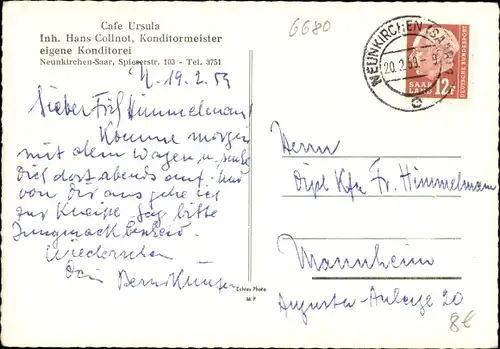 Cafe Ursula
Inh. Hans Collnot, Konditormeister
eigene Konditorei
Neunkirchen-Saar, Spieserstr. 103 - Tel. 3751
N. 19.2.59
Lieber Himmelmann!
Komme morgen
mit dem Wagen u. suche
Dich dort abends auf. Und
von Dir aus gehe ich
zur Kneipe. Sag bitte
Jungmack Bescheid.
Wiedersehen
Dein Bernd
Echtes Photo
M P
6680
NEUNKIRCHEN (SAAR)
20.2.59
c
SAAR
LAND
12F
DEUTSCHE BUNDESPOST
Herrn
Dipl Kfm Fr. Himmelmann
Mannheim
Augusta-Anlage 20
8€